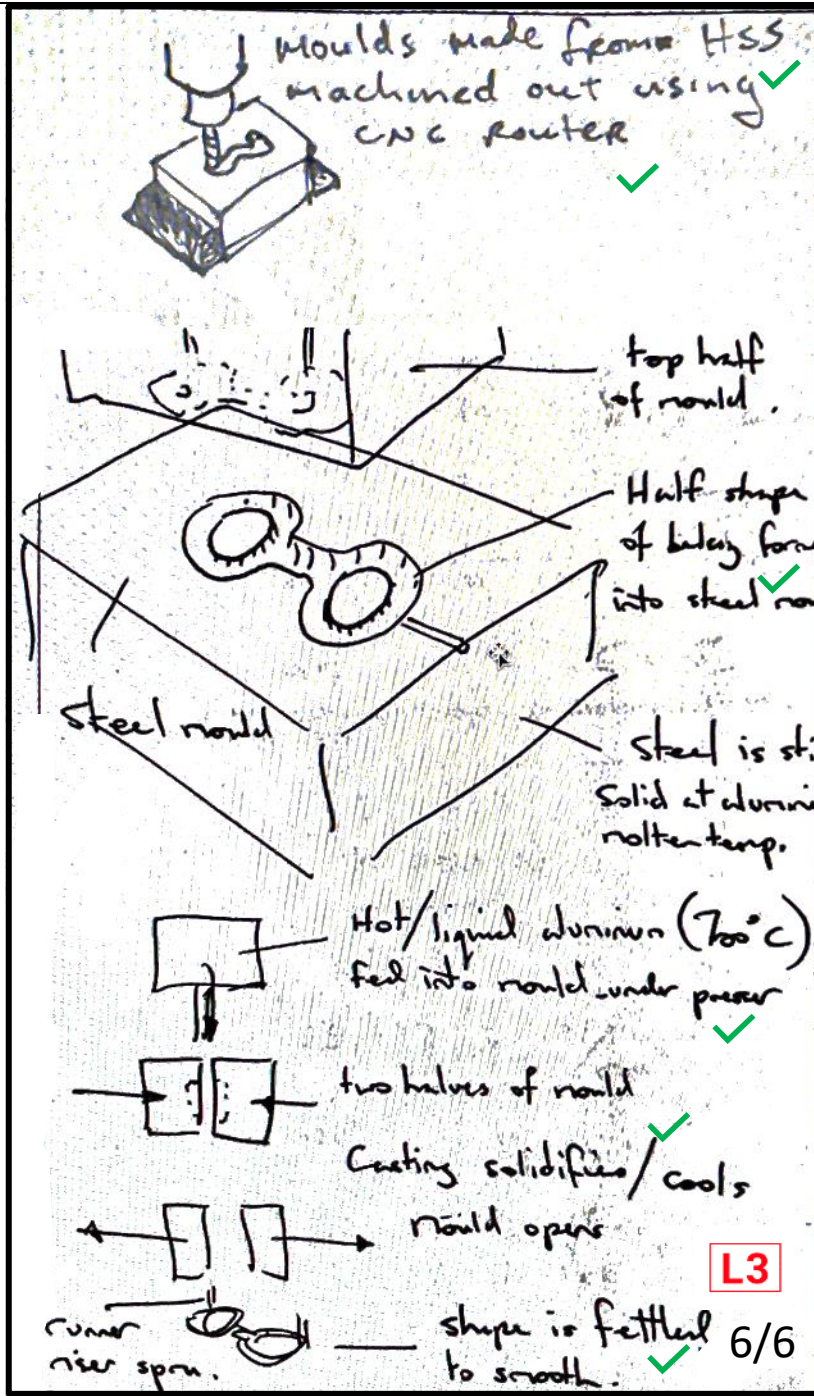 Moulds made from HSS
machined out using
CNC Router
top half
of mould.
Half shape
of
into steel
Steel mould
Steel is
Solid at
molten temp.
Hot/liquid aluminum (700°C)
fed into mould under
two halves of mould
Casting solidifies/cools
Mould opens
runner
riser
shape is fettled
to smooth.
L3
6/6